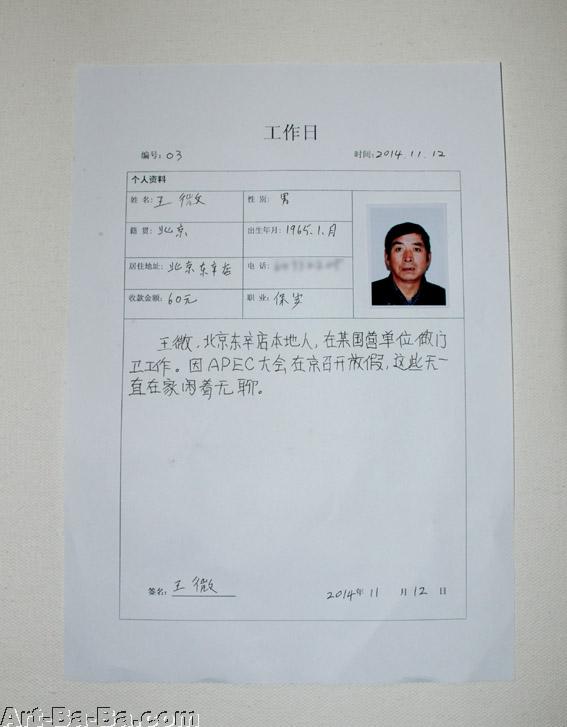 工作日
编号: 03 时间: 2014.11.12
个人资料
姓名: 王微 性别: 男
籍贯: 北京 出生年月: 1965.1.月
居住地址: 北京东辛店 电话:
收款金额: 60元 职业: 保安
王微,北京东辛店本地人,在某国营单位做门
卫工作。因APEC大会在京召开放假,这些天一
直在家闲着无聊。
签名: 王微 2014年 11 月 12 日
Art-Ba-Ba.com